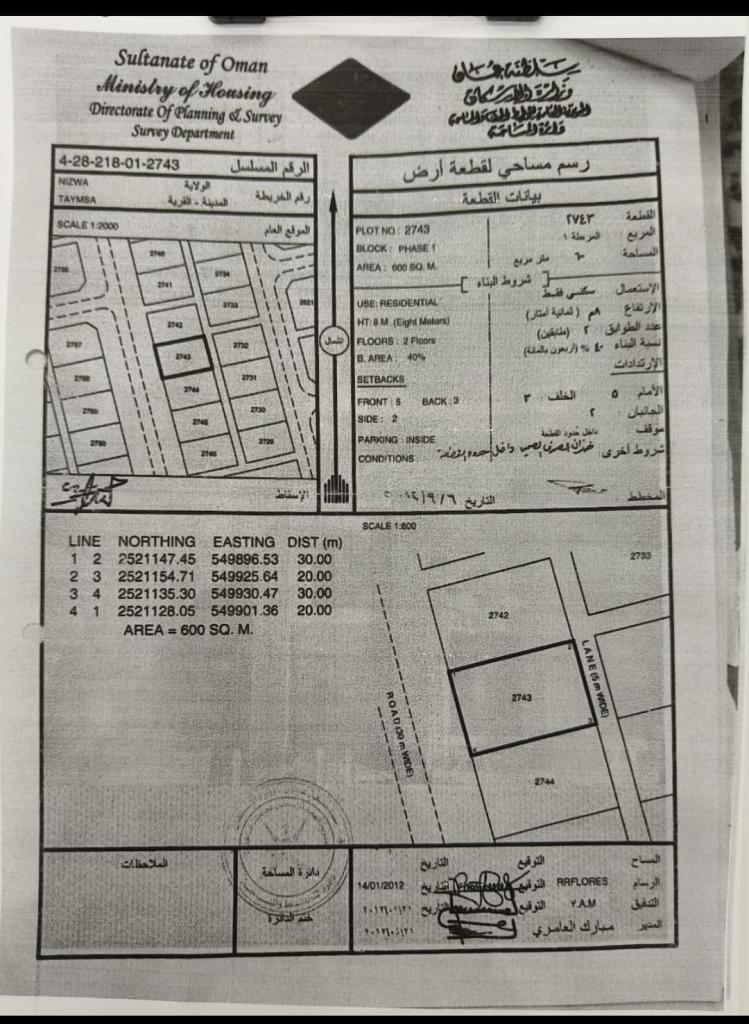 Sultanate of Oman
Ministry of Housing
Directorate Of Planning & Survey
Survey Department
سلطنة عمان
وزارة الإسكان
دائرة المساحة
4-28-218-01-2743 الرقم المسلسل
NIZWA الولاية
TAYMSA المدينة - القرية رقم الخريطة
SCALE 1:2000 الموقع العام
2740
2734
2741
2733
2742
2743
2732
2744
2731
2745
2730
2746
2729
2787
2788
2789
2790
الإسقاط
الشمال
رسم مساحي لقطعة أرض
بيانات القطعة
PLOT NO : 2743 ٢٧٤٣ القطعة
BLOCK : PHASE 1 المرحلة ١ المربع
AREA : 600 SQ. M. متر مربع المساحة
شروط البناء
USE: RESIDENTIAL سكني فقط الإستعمال
HT: 8 M (Eight Meters) ٨م (ثمانية أمتار) الإرتفاع
FLOORS : 2 Floors ٢ (طابقين) عدد الطوابق
B. AREA : 40% ٤٠ % (أربعون بالمائة) نسبة البناء
SETBACKS الإرتدادات
FRONT : 5 BACK : 3 ٣ الخلف ٥ الأمام
SIDE : 2 ٢ الجانبان
PARKING : INSIDE داخل حدود القطعة موقف
CONDITIONS خزان الصرف الصحي داخل حدود القطعة شروط أخرى
التاريخ المخطط
SCALE 1:600
LINE NORTHING EASTING DIST (m)
1 2 2521147.45 549896.53 30.00
2 3 2521154.71 549925.64 20.00
3 4 2521135.30 549930.47 30.00
4 1 2521128.05 549901.36 20.00
AREA = 600 SQ. M.
2733
2742
2743
2744
LANE (5 m WIDE)
ROAD (30 m WIDE)
الملاحظات
دائرة المساحة
ختم الدائرة
التاريخ التوقيع المساح
14/01/2012 التاريخ التوقيع RRFLORES الرسام
التاريخ التوقيع Y.A.M التدقيق
مبارك العامري المدير